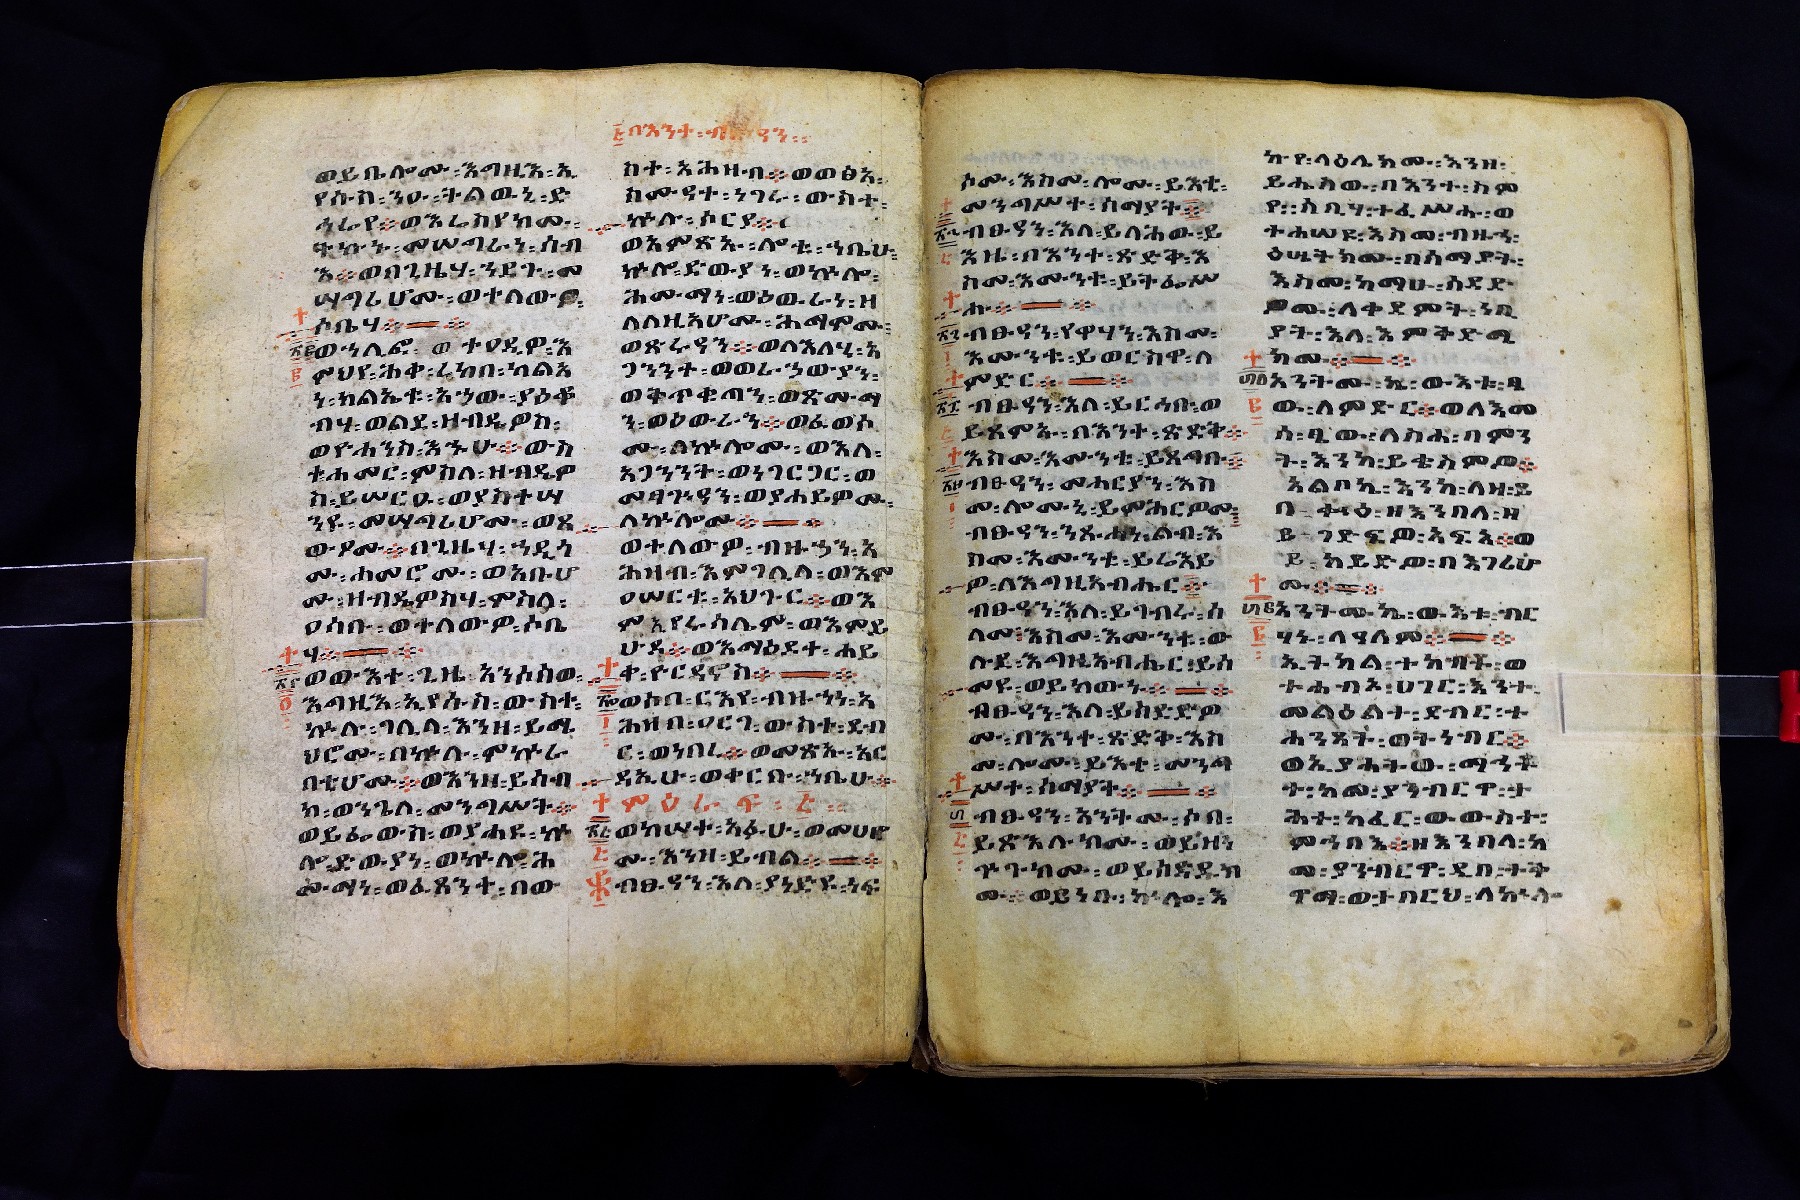 ፭በእንተ፡ብፁዓን፡
ወይቤሎሙ፡እግዚእ፡ኢ
የሱስ፡ንዑ፡ትልውኒ፡ድ
ኅሬየ፡ወእሬስየክሙ፡
ትኩኑ፡መሠግራነ፡ሰብ
እ፡ወበጊዜሃ፡ኀደጉ፡መ
ሣግሪሆሙ፡ወተለውዎ፡
ሶቤሃ
ወኀሊፎ፡ወተዐዲዎ፡እ
ምህየ፡ሕቀ፡ረከበ፡ካልአ
ነ፡ክልኤተ፡አኃው፡ያዕቆ
ብሃ፡ወልደ፡ዘብዴዎስ
ወዮሐንስ፡እኁሁ፡ውስ
ተ፡ሐመር፡ምስለ፡ዘብዴዎ
ስ፡ይሠርዑ፡ወያስተሣ
ንዩ፡መሣግሪሆሙ፡ወጸ
ውዖሙ፡በጊዜሃ፡ኀዲጎ
ሙ፡ሐመሮሙ፡ወአቡሆ
ሙ፡ዘብዴዎስሃ፡ምስለ፡
ዐሳቡ፡ወተለውዎ፡ሶቤ
ሃ
ወውእተ፡ጊዜ፡አንሶሰወ፡
እግዚእ፡ኢየሱስ፡ውስተ፡
ኵሉ፡ገሊላ፡እንዘ፡ይሜ
ህሮሙ፡በኵሉ፡ምኵራ
በቲሆሙ፡ወእንዘ፡ይሰብ
ክ፡ወንጌለ፡መንግሥት
ወይፌውስ፡ወያሐዩ፡ኵ
ሎ፡ድውያነ፡ወኵሎ፡ሕ
ሙማነ፡ወፊጸንተ፡በው
ስተ፡አሕዛብ፡ወወፅአ፡
ስሙዓተ፡ነገሩ፡ውስተ፡
ኵሉ፡ሶርያ
ወአምጽኡ፡ሎቱ፡ኀቤሁ፡
ኵሎ፡ድውያነ፡ወኵሎ፡
ሕሙማነ፡ወዕውራነ፡ዘ
ለለዚአሆሙ፡ሕማሞሙ፡
ወጽሩዓን፡ወለእለሂ፡አ
ጋንንት፡ወወራኃውያን፡
ወቅጥቁጣን፡ወጽሙማ
ን፡ወዕውራን፡ወፈወሶ
ሙ፡ለኵሎሙ፡ወእለ፡
አጋንንት፡ወነገርጋር፡ወ
መፃጕዓን፡ወያሐይዎሙ፡
ለኵሎሙ
ወተለውዎ፡ብዙኃን፡አ
ሕዛብ፡እምገሊላ፡ወእም
ዐሠርቱ፡አህጉር፡ወእ
ምኢየሩሳሌም፡ወእምይ
ሁዳ፡ወእማዕዶተ፡ሐይ
ቀ፡ዮርዳኖስ
ወሶበ፡ርእየ፡ብዙኀነ፡አ
ሕዛበ፡ዐርገ፡ውስተ፡ደብ
ር፡ወነበረ፡ወመጽኡ፡አር
ዳኢሁ፡ወቀርቡ፡ኀቤሁ
ምዕራፍ፡፭
ወከሠተ፡አፉሁ፡ወመሀሮ
ሙ፡እንዘ፡ይብል
ብፁዓን፡እለ፡ያነድዩ፡ነፍ
ሶሙ፡እስመ፡ሎሙ፡ይእቲ፡
መንግሥተ፡ሰማያት
ብፁዓን፡እለ፡ይላሕው፡ይ
እዜ፡በእንተ፡ጽድቅ፡እ
ስመ፡እሙንቱ፡ይትፌሥ
ሑ
ብፁዓን፡የዋሃን፡እስመ፡
እሙንቱ፡ይወርስዋ፡ለ
ምድር
ብፁዓን፡እለ፡ይርኅቡ፡ወ
ይጸምኡ፡በእንተ፡ጽድቅ
እስመ፡እሙንቱ፡ይጸግቡ
ብፁዓን፡መሐርያን፡እስ
መ፡ሎሙኒ፡ይምሕርዎሙ
ብፁዓን፡ንጹሓነ፡ልብ፡እ
ስመ፡እሙንቱ፡ይሬእይ
ዎ፡ለእግዚአብሔር
ብፁዓን፡እለ፡ይገብሩ፡ሰ
ላመ፡እስመ፡እሙንቱ፡ው
ሉደ፡እግዚአብሔር፡ይሰ
መዩ፡ወይከውኑ
ብፁዓን፡እለ፡ይሰድድዎ
ሙ፡በእንተ፡ጽድቅ፡እስ
መ፡ሎሙ፡ይእቲ፡መንግ
ሥተ፡ሰማያት
ብፁዓን፡አንትሙ፡ሶበ፡
ይጸእሉክሙ፡ወይዘነ
ጕጉክሙ፡ወይሰድዱክ
ሙ፡ወይነቡ፡ኵሎ፡እ
ኩየ፡ላዕሌክሙ፡እንዘ፡
ይሔስው፡በእንተ፡ስም
የ፡ሰቤሃ፡ተፈሥሑ፡ወ
ተሐሠዩ፡እስመ፡ብዙኅ፡
ዕሤትክሙ፡በሰማያት፡
እስመ፡ከማሁ፡ሰደድ
ዎሙ፡ለቀደምት፡ነቢ
ያት፡እለ፡እምቅድሜ
ክሙ
አንትሙ፡ኬ፡ውእቱ፡ፄ
ው፡ለምድር፡ወለእመ
ሰ፡ፄው፡ለስሐ፡በምን
ት፡እንከ፡ይቄስምዎ
አልቦኬ፡እንከ፡ለዘ፡ይ
በቍዕ፡ዘእንበለ፡ዘ
ይገድፍዎ፡አፍአ፡ወ
ይከይድዎ፡በእገሪሆ
ሙ
አንትሙ፡ኬ፡ውእቱ፡ብር
ሃኑ፡ለዓለም
ኢትክል፡ተኀብኦ፡ወ
ተሐብኦ፡ሀገር፡እንተ፡
መልዕልተ፡ደብር፡ተ
ሐንጸት፡ወትነብር
ወኢያኅትው፡ማኅቶ
ተ፡ከመ፡ያንብርዋ፡ታ
ሕተ፡ከፈር፡ውውስተ፡
ምኅባእ፡ዘእንበለ፡ከ
መ፡ያንብርዋ፡ዲበ፡ተቅ
ዋማ፡ወታበርህ፡ለኵሉ